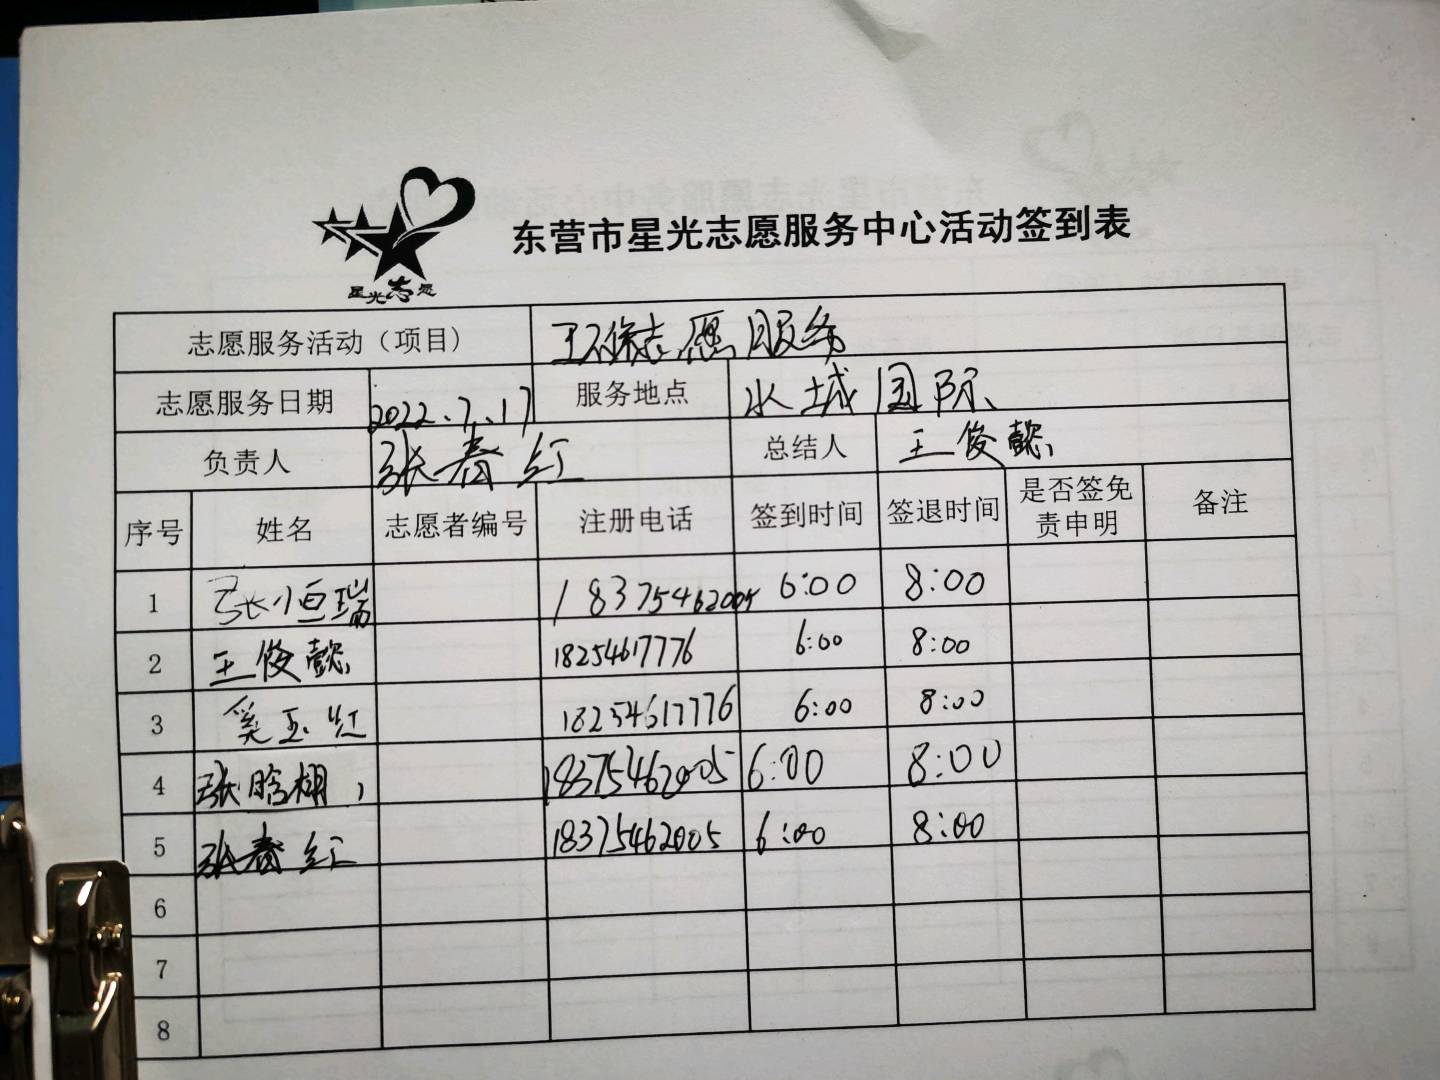 星光志愿
东营市星光志愿服务中心活动签到表
志愿服务活动（项目） 环保志愿服务
志愿服务日期 2022.7.17 服务地点 水城国际
负责人 张春红 总结人 王俊懿
序号 姓名 志愿者编号 注册电话 签到时间 签退时间 是否签免责申明 备注
1 张恒瑞 18375462005 6:00 8:00
2 王俊懿 18254617776 6:00 8:00
3 奚玉红 18254617776 6:00 8:00
4 张晗栩 18375462005 6:00 8:00
5 张春红 18375462005 6:00 8:00
6
7
8